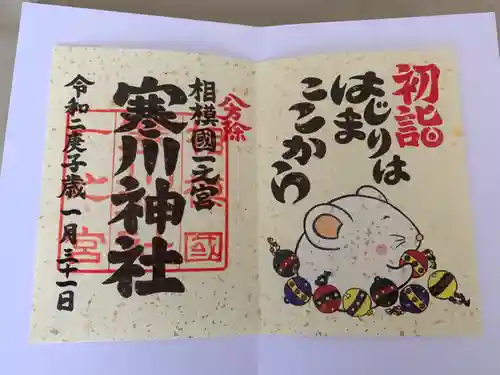 初詣
はじまりは
ここから
八方除
相模國一之宮
寒川神社
令和二庚子歳一月三十一日
相模國
一之宮